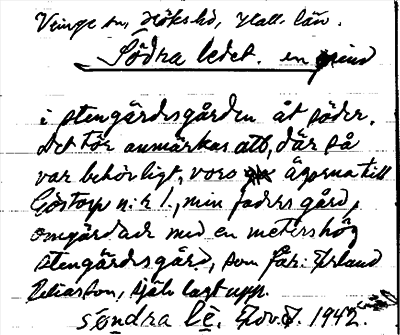 Veinge sn, Hökshd, Hall. län.
Södra ledet. en grind
i stengärdesgården åt söder.
Det tör anmärkas att, där så
var behövligt, voro ägorna till
Göstorp n:r 1, min faders gård,
omgärdade med en metershög
stengärdsgård, som far: Erland
Eliasson, själv lagt upp.
söndra lè. Nov. 1942